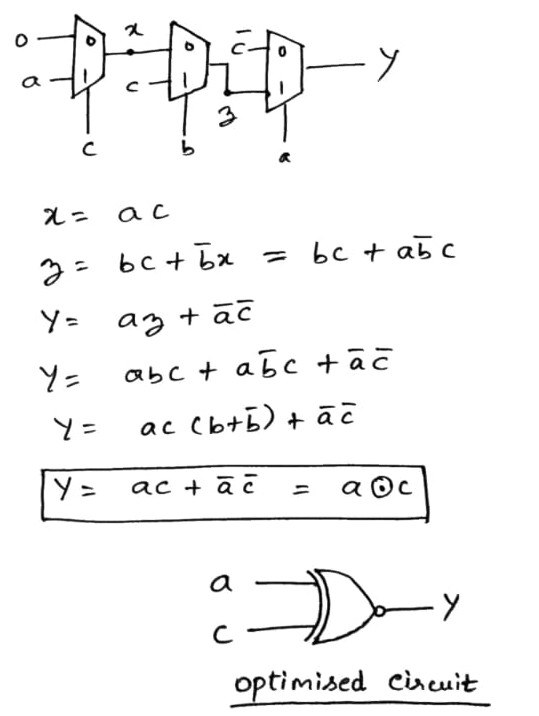 0 0 x 0 c̅ 0 Y
a 1 c 1 1
z
c b a
x = ac
z = bc + b̅x = bc + ab̅c
Y = az + a̅c̅
Y = abc + ab̅c + a̅c̅
Y = ac (b+b̅) + a̅c̅
Y = ac + a̅c̅ = a⊙c
a
Y
c
optimised circuit